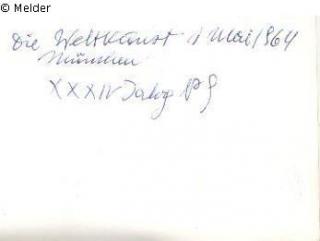 © Melder
Die Weltkunst 1 Mai 1964
München
XXXIV Jahrg